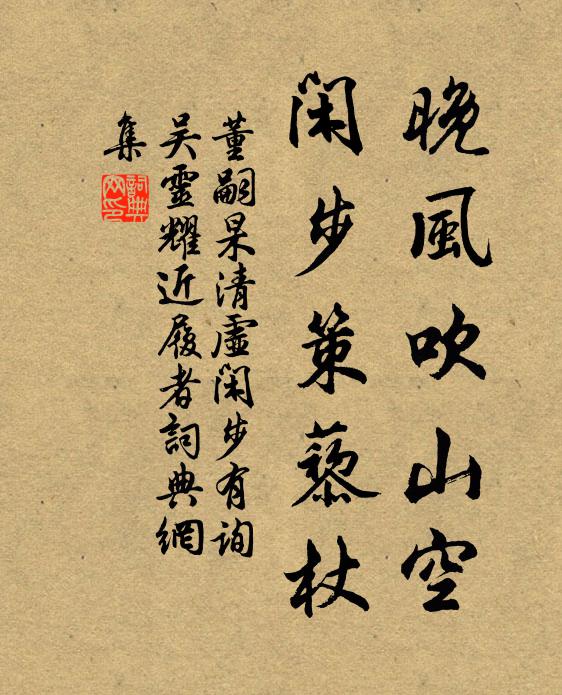 晚風吹山空
閑步策藜杖
董嗣杲清虛閑步有詢
吴靈耀近履者詞典網
集
詞典网印